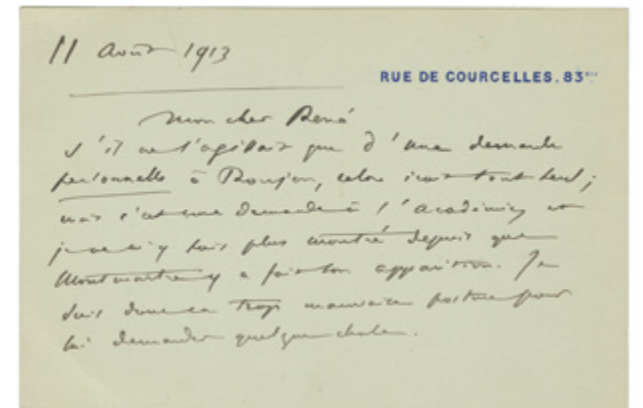 11 Août 1913
RUE DE COURCELLES, 83 BIS
Mon cher René
S'il ne s'agissait que d'une demande
personnelle à Roujon, cela irait tout seul ;
mais c'est une demande à l'académie, et
je ne m'y suis plus montré depuis que
Montmartre y a fait son apparition. Je
suis donc en trop mauvaise posture pour
lui demander quelque chose.